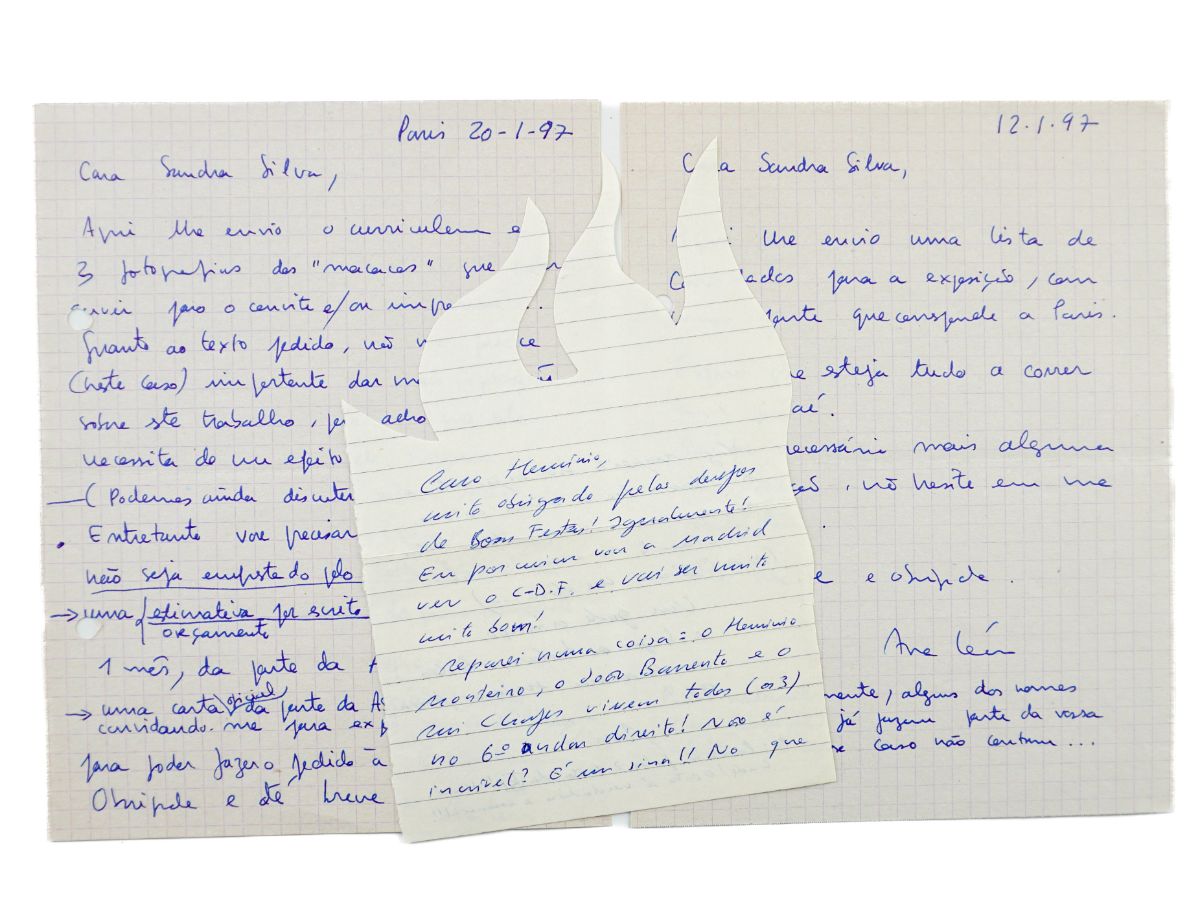 Paris 20-1-97
Cara Sandra Silva,
Aqui lhe envio o curriculum e
3 fotografias dos "macacos" que
servir para o convite e/ou
Quanto ao texto pedido, não
(neste caso) importante dar
sobre este trabalho, acho
necessita de um efeito
(Podemos ainda discutir
. Entretanto vou precisar
não seja empostado pelo
→ uma estimativa por escrito
orçamento
1 mês, da parte da A
→ uma carta oficial da parte da As
convidando-me para exp
para poder fazer o pedido à
Obrigada e até breve
12.1.97
Cara Sandra Silva,
lhe envio uma lista de
convidados para a exposição, com
que corresponde a Paris.
esteja tudo a correr
aí.
necessário mais alguma
, não hesite em me
.
e obrigada.
Ana León
mente, alguns dos nomes
já fazem parte da vossa
caso não contem...
Caro Hermínio,
muito obrigado pelos desejos
de Boas Festas! Igualmente!
Eu por mim vou a Madrid
ver o C-D.F. e vai ser muito
muito bom!
Reparei numa coisa: o Hermínio
Monteiro, o João Barrento e o
Rui Chafes vivem todos (os 3)
no 6º andar direito! Não é
incrível? É um sinal! No que